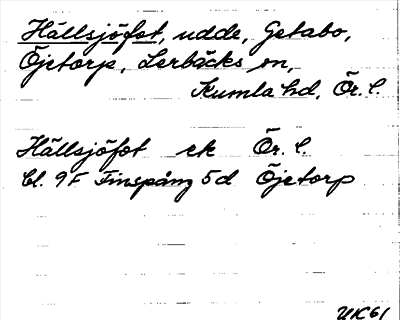 Hällsjöfot, udde, Getabo,
Öjetorp, Lerbäcks sn,
Kumla hd, Ör. l.
Hällsjöfot ek Ör. l.
bl. 9F Finspång 5d Öjetorp
UK61